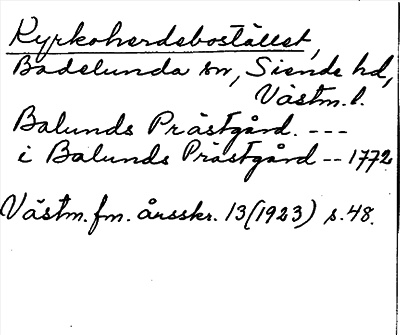 Kyrkoherdebostället,
Badelunda sn, Siende hd,
Västm. l.
Balunds Prästgård. ---
i Balunds Prästgård -- 1772
Västm. fm. årsskr. 13 (1923) s. 48.